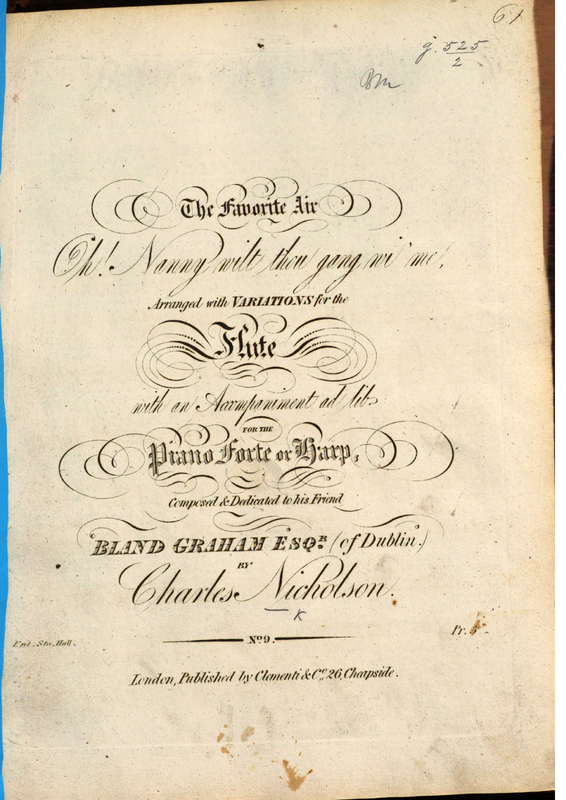 61
g. 525
2
The Favorite Air
Oh! Nanny wilt thou gang wi' me,
Arranged with VARIATIONS for the
Flute
with an Accmpaniment ad lib.
FOR THE
Piano Forte or Harp,
Composed & Dedicated to his Friend
BLAND GRAHAM ESQR. (of Dublin.)
BY
Charles Nicholson.
K
Ent. Sta. Hall.
No. 9.
Pr.
London, Published by Clementi & Co. 26, Cheapside.